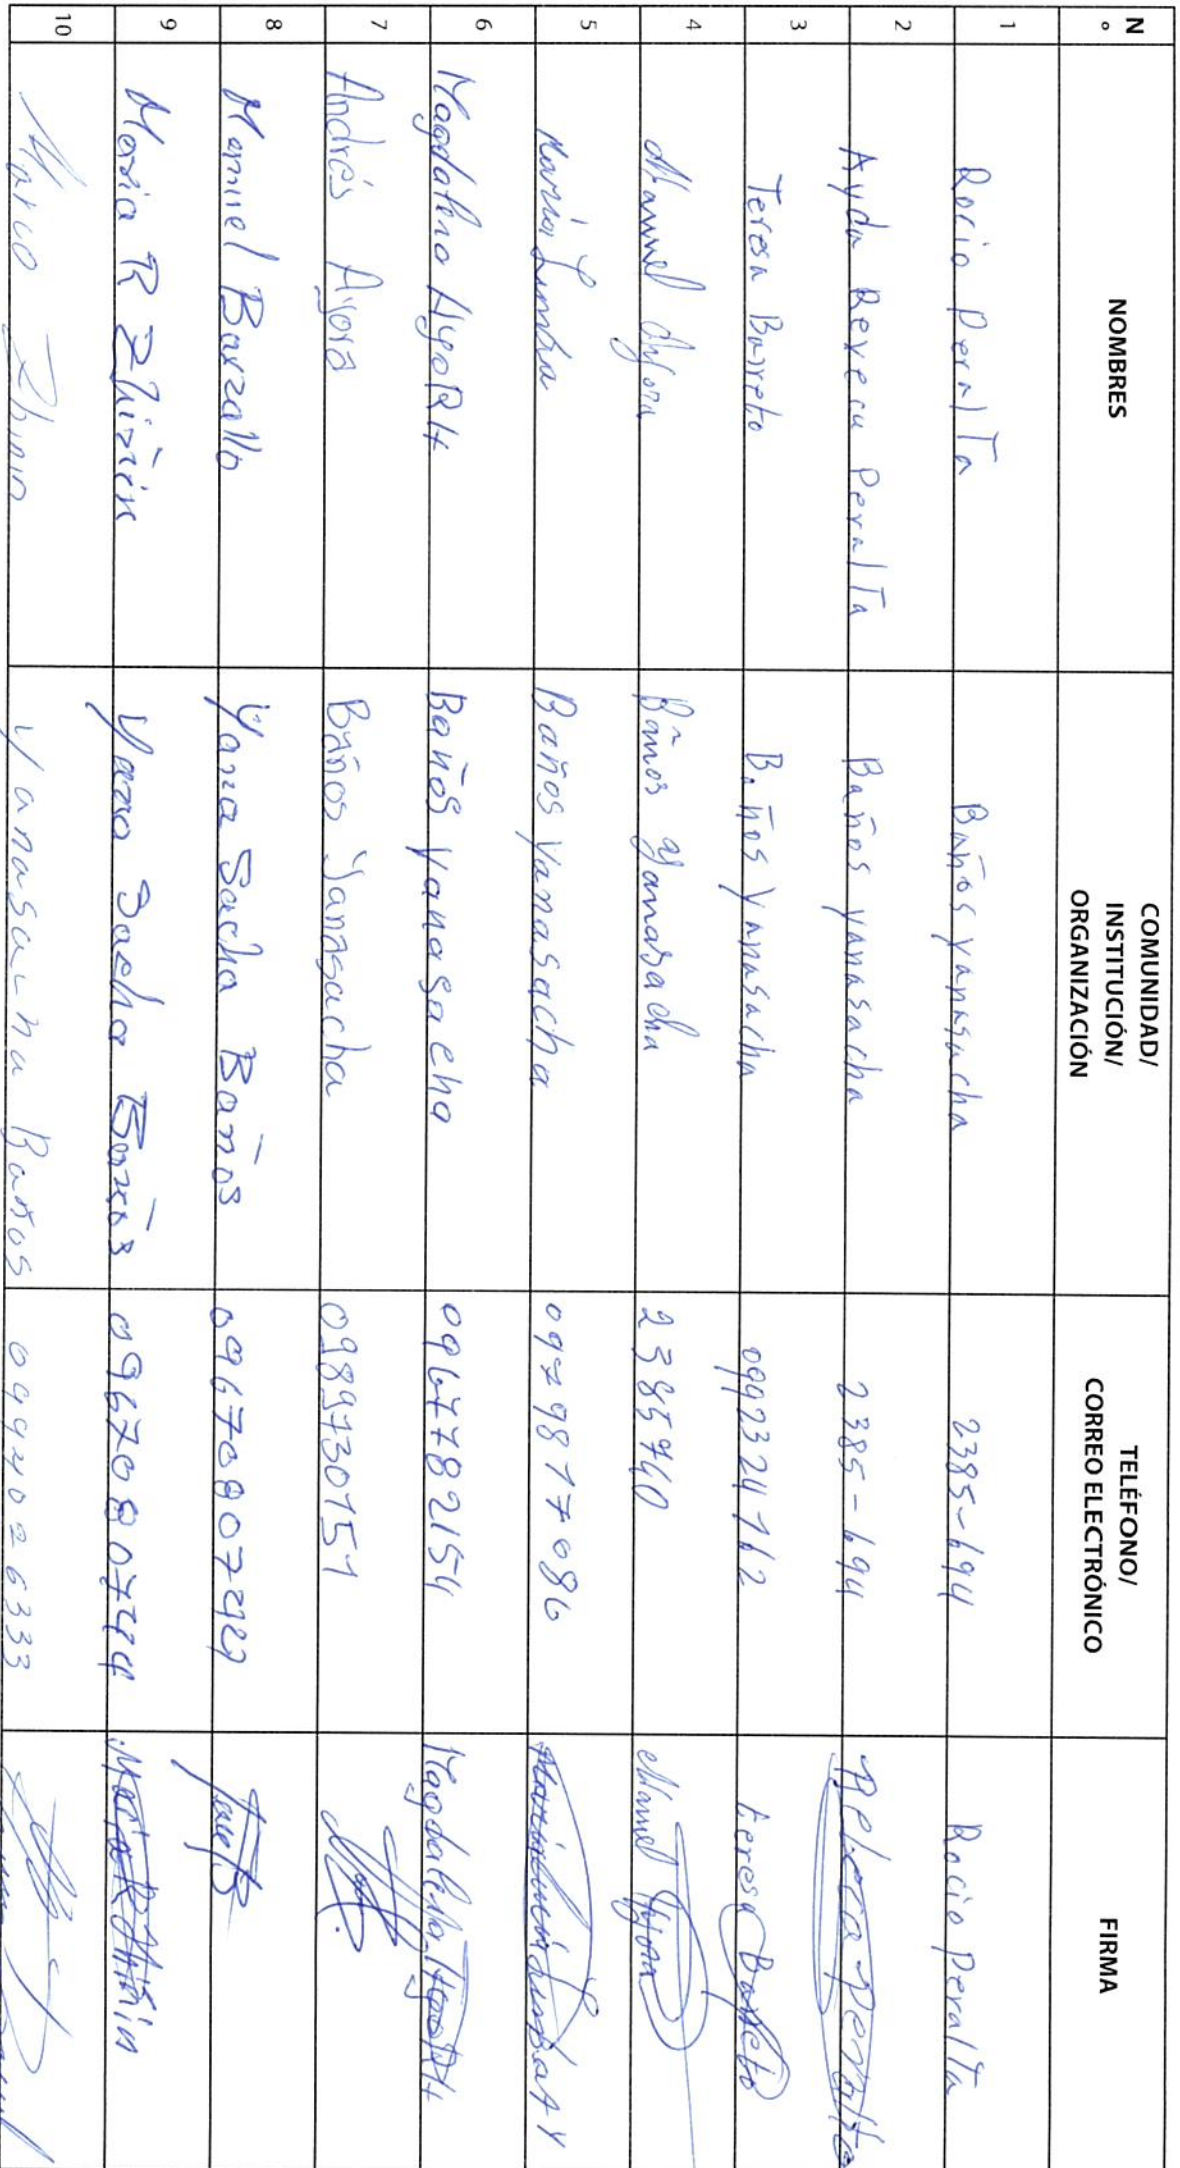 N° NOMBRES COMUNIDAD/ INSTITUCIÓN/ ORGANIZACIÓN TELÉFONO/ CORREO ELECTRÓNICO FIRMA
1 Rocio Peralta Baños yanasacha 2385-694 Rocio Peralta
2 Ayda Reveca Peralta Baños yanasacha 2385-694 Rebeca Peralta
3 Teresa Barreto Baños yanasacha 0992324762 teresa Barreto
4 Manuel Ayora Baños yanasacha 2385740 Manuel Ayora
5 Maria Baños Yanasacha
6 Magdalena AyoRA Baños yanasacha 0967782154 Magdalena AyoRA
7 Andrés Ayora Baños Yanasacha 0989730151
8 Manuel Barzallo Yana Sacha Baños
9 Maria R Zhiñin Yana Sacha Baños 0967080744 Maria R Zhiñin
10 Marco Zhinin Yanasacha Baños 0994026333